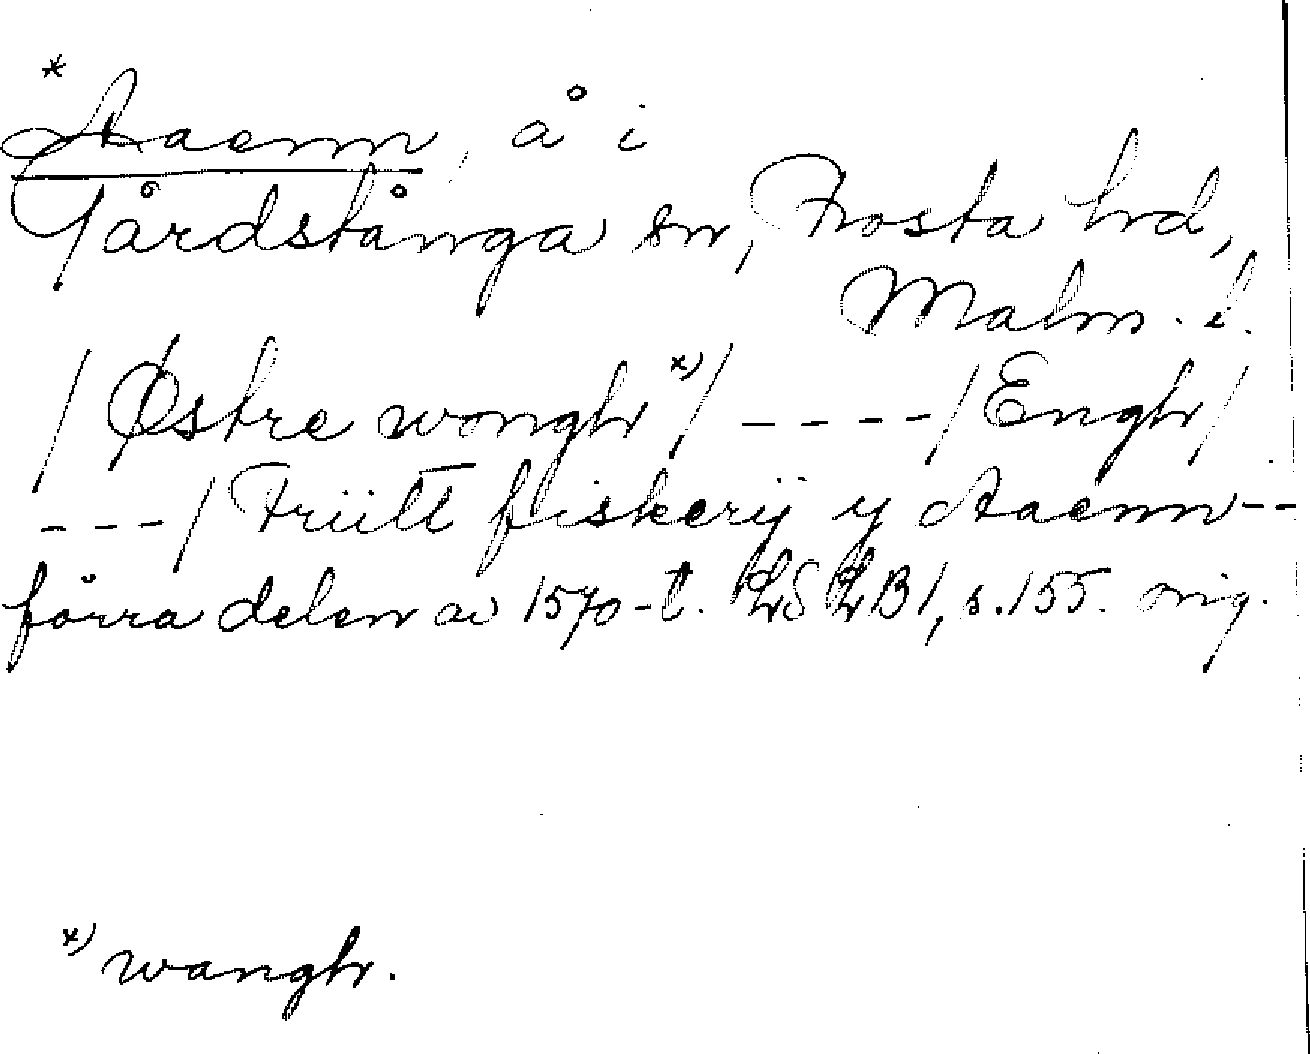 * Aaenn, å i
Gårdstånga sn, Frosta hd,
Malm. l.
/ Østre wongh *) / ---- / Engh /
--- / Friitt fiskerij y Aaenn --
förra delen av 1570-t. LSLB 1, s. 155. orig.
*) wangh.